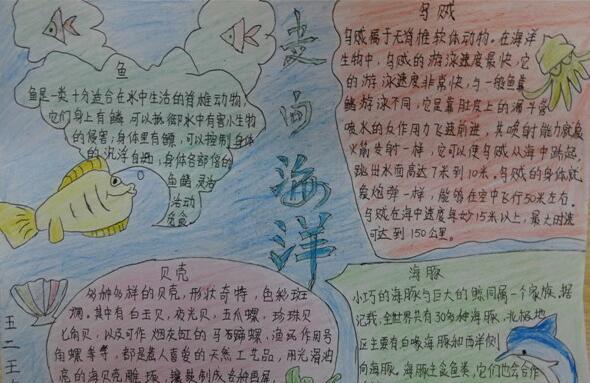 走向海洋
鱼
鱼是一类十分适合在水中生活的脊雉动物,
它们身上有鳞,可以抵御水中有害小生物
的侵害;身体里有鳔,可以控制身体
的沉浮自由;身体各部位的
鱼鳍灵活
活动
乌贼
乌贼属于无脊椎软体动物。在海洋
生物中,乌贼的游泳速度最快,它
的游泳速度非常快,与一般鱼靠
鳍游泳不同,它是靠肚皮上的漏斗管
喷水的反作用力飞速前进,其喷射能力就像
火箭发射一样,它可以使乌贼从海中跳起,
跳出水面高达7米到10米。乌贼的身体就
炮弹一样,能够在空中飞行50米左右。
乌贼在海中速度每秒15米以上,最大时速
可达到150公里。
贝壳
多种多样的贝壳,形状奇特,色彩斑
斓。其中有白玉贝,夜光贝,五爪螺,珍珠贝
七角贝,以及可作烟灰缸的马蹄螺,渔民作用号
角螺等等,都是惹人喜爱的天然工艺品,用光滑洁
亮的海贝壳雕琢,镶嵌制成各种画屏
海豚
小巧的海豚与巨大的鲸同属一个家族,据
记载,全世界共有30多种海豚,北极地
区主要有白喙海豚如西洋侧
向海豚。海豚注食鱼类,它们也会合作
五二王